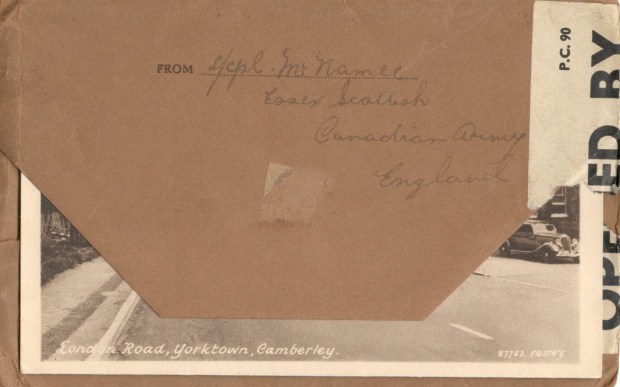 FROM L/cpl. McNamee
Essex Scottish
Canadian Army
England
P.C. 90
OPENED BY
London Road, Yorktown, Camberley.
87782 FRITH'S